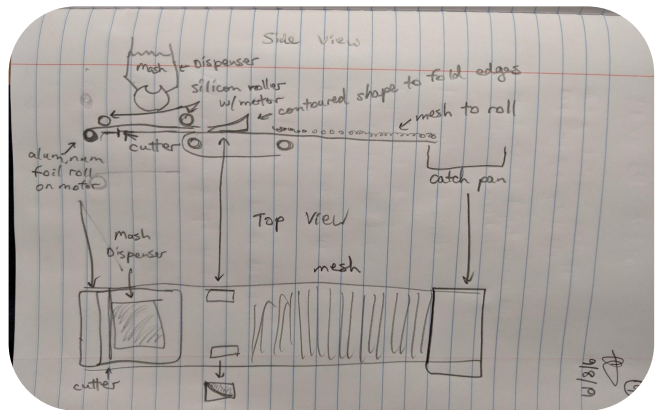 Side View
mash
Dispenser
silicon roller
w/motor
contoured shape to fold edges
mesh to roll
cutter
aluminum
foil roll
on motor
catch pan
Top View
Mash
Dispenser
mesh
cutter
9/8/19